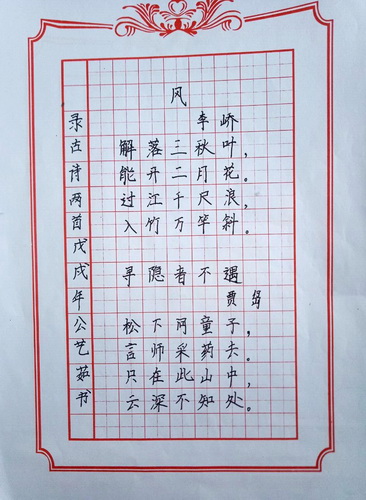 风
李峤
解落三秋叶，
能开二月花。
过江千尺浪，
入竹万竿斜。
寻隐者不遇
贾岛
松下问童子，
言师采药去。
只在此山中，
云深不知处。
录古诗两首戊戌年公艺茹书